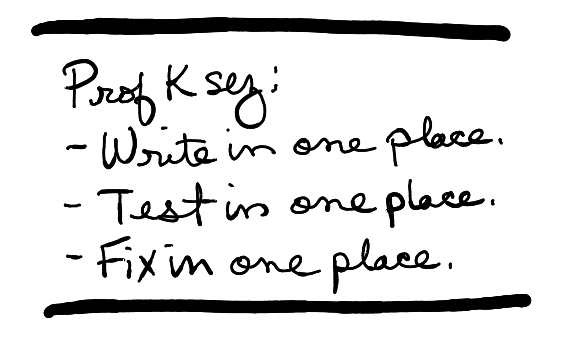 Prof K sez:
- Write in one place.
- Test in one place.
- Fix in one place.